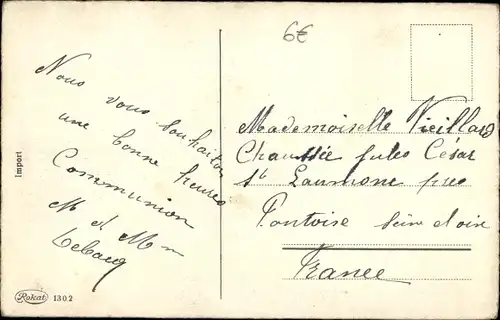 6€
Nous vous souhaiton
une bonne heures
Communion
M et Mm
Lebacq
Mademoiselle Vieillard
Chaussée jules César
St Laumone pres
Pontoise Seine et oise
France
Import
Rokat 1302